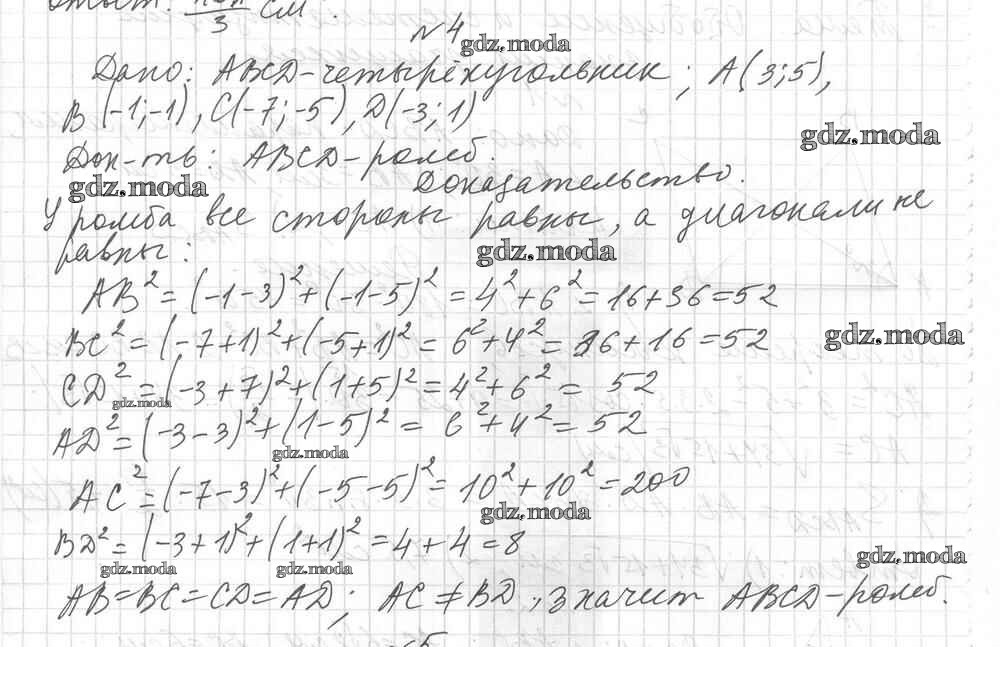 3 см.
№4
gdz.moda
Дано: ABCD-четырёхугольник; A(3;5),
B(-1;-1), C(-7;-5), D(-3;1)
gdz.moda
Док-ть: ABCD-ромб.
gdz.moda
Доказательство.
У ромба все стороны равны, а диагонали не
равны:
gdz.moda
AB²=(-1-3)²+(-1-5)²=4²+6²=16+36=52
BC²=(-7+1)²+(-5+1)²=6²+4²=36+16=52
gdz.moda
CD²=(-3+7)²+(1+5)²=4²+6²=52
gdz.moda
AD²=(-3-3)²+(1-5)²=6²+4²=52
gdz.moda
AC²=(-7-3)²+(-5-5)²=10²+10²=200
gdz.moda
BD²=(-3+1)²+(1+1)²=4+4=8
gdz.moda
gdz.moda gdz.moda
AB=BC=CD=AD; AC≠BD, значит ABCD-ромб.